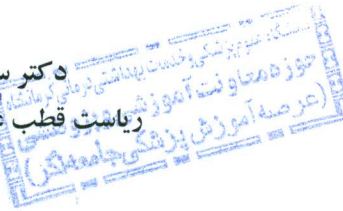 دکتر س
ریاست قطب ع
دانشگاه علوم پزشکی و خدمات بهداشتی درمانی کرمانشاه
حوزه معاونت آموزشی
(عرصه آموزش پزشکی جامعه نگر)